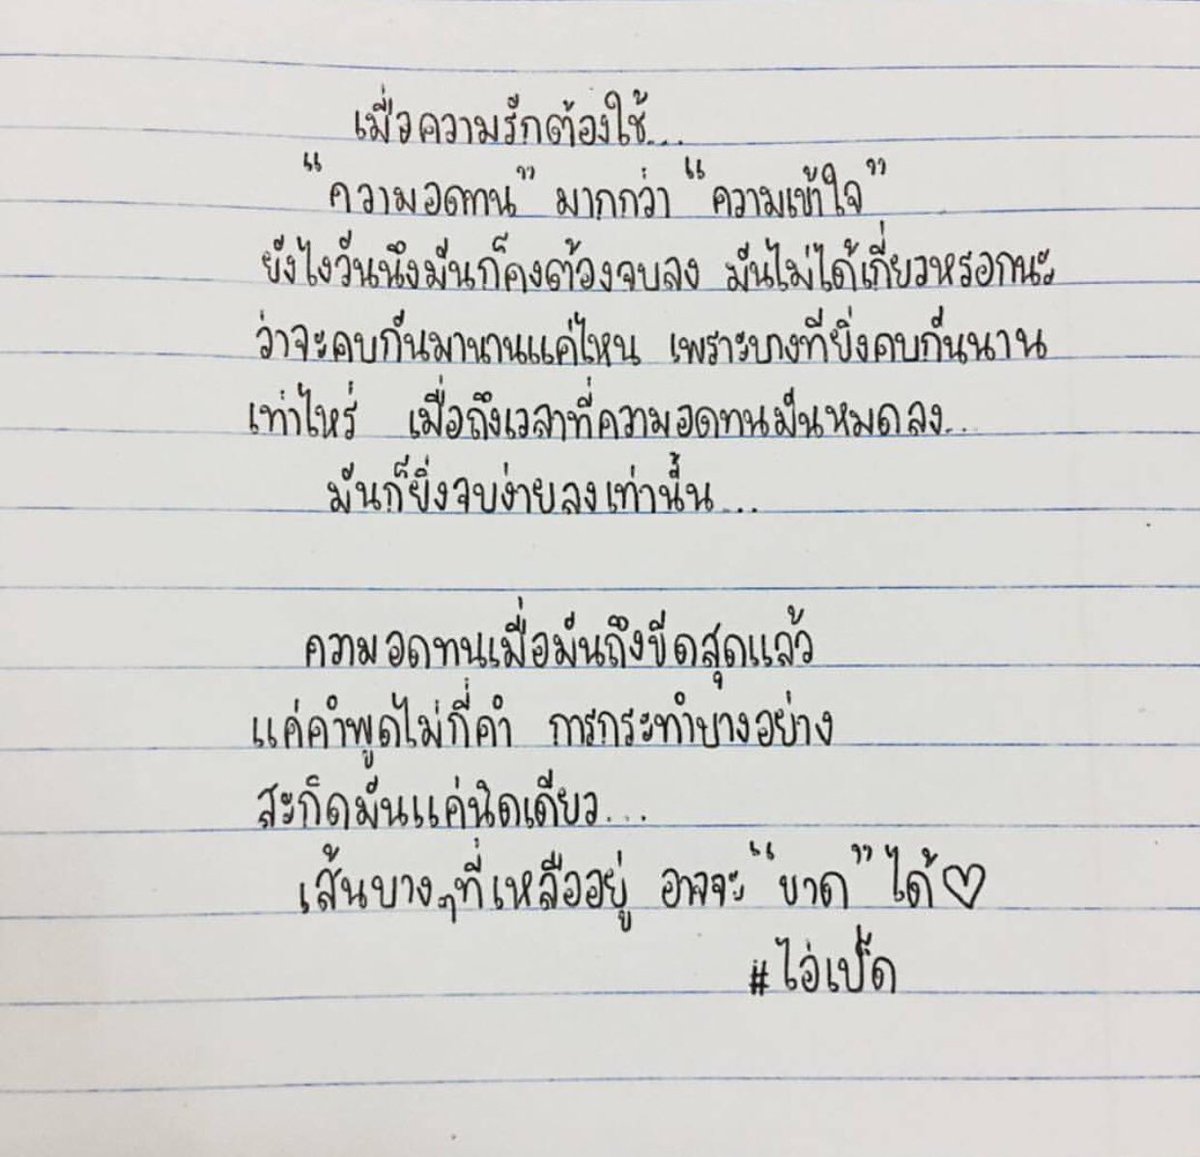 เมื่อความรักต้องใช้...
"ความอดทน" มากกว่า "ความเข้าใจ"
ยังไงวันนึงมันก็คงต้องจบลง มันไม่ได้เกี่ยวหรอกนะ
ว่าจะคบกันมานานแค่ไหน เพราะบางทียิ่งคบกันนาน
เท่าไหร่ เมื่อถึงเวลาที่ความอดทนมันหมดลง...
มันก็ยิ่งจบง่ายลงเท่านั้น...
ความอดทนเมื่อมันถึงขีดสุดแล้ว
แค่คำพูดไม่กี่คำ การกระทำบางอย่าง
สะกิดมันแค่นิดเดียว...
เส้นบางๆที่เหลืออยู่ อาจจะ "ขาด" ได้♡
#ไอ่เป็ด